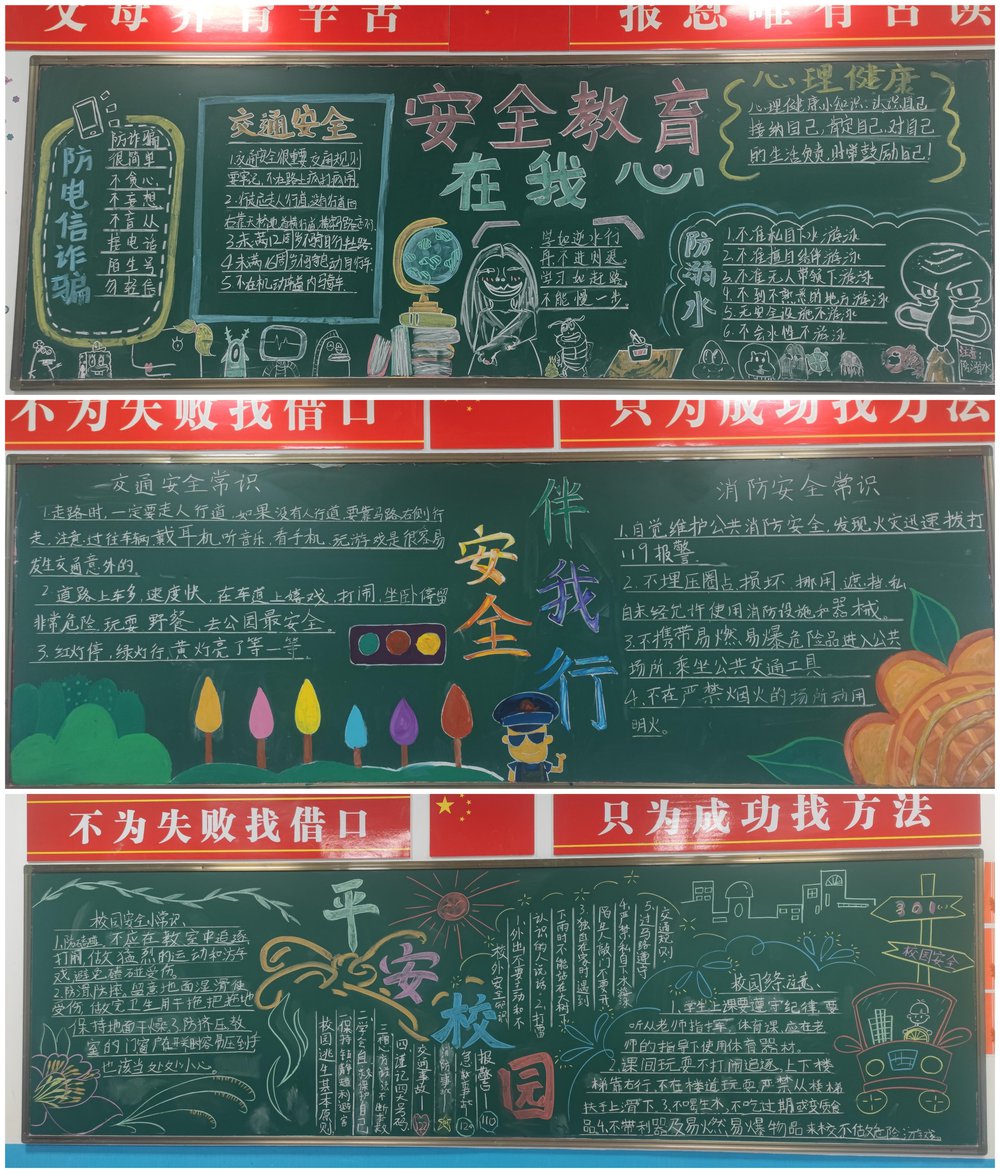 父母养育辛苦
报恩唯有苦读
防电信诈骗
防诈骗
很简单
不贪心
不妄想
不盲从
接电话
陌生号
勿轻信
交通安全
1.交通安全很重要,交通规则
要牢记,不在路上疯打闹。
3.未满12周岁不骑自行车上路。
5.不在机动车道内骑车
安全教育
在我心
学如逆水行
再不进则退
学习如赶路
不能慢一步。
心理健康
心理健康小知识:认识自己
接纳自己,肯定自己,对自己
的生活负责,时常鼓励自己!
防溺水
1.不准私自下水游泳
2.不准擅自结伴游泳
3.不准无人带领下游泳
4.不到不熟悉的地方游泳
5.无安全设施不游泳
6.不会水性不游泳
注意:
防溺水
不为失败找借口
只为成功找方法
交通安全常识
1.走路时,一定要走人行道,如果没有人行道,要靠马路右侧行
走,注意过往车辆戴耳机,听音乐,看手机,玩游戏是很容易
发生交通意外的。
2.道路上车多,速度快,在车道上嬉戏,打闹,坐卧停留
非常危险,玩耍,野餐,去公园最安全。
3.红灯停,绿灯行,黄灯亮了等一等
安全
伴我行
消防安全常识
1.自觉维护公共消防安全,发现火灾迅速拨打
119报警.
2.不埋压圈占,损坏,挪用,遮挡,私
自未经允许使用消防设施和器械。
3.不携带易燃,易爆危险品进入公共
场所,乘坐公共交通工具
4.不在严禁烟火的场所动用
明火。
不为失败找借口
只为成功找方法
校园安全小常识
1.防碰撞.不应在教室中追逐
打闹,做猛烈的运动和游
戏避免碰碰受伤
2.防滑,防摔.留意地面湿滑使
受伤,做完卫生用干拖把拖地
保持地面干燥.3.防挤压,教
室的门窗户在开关时容易压到手
也该当处处小心。
平安校园
校园逃生基本原则
一保持镇静趋利避害
二学会自救保护自己
四谨记四大号码
交通事故 122
急救事故 120
报警台 110
校外安全知识
1.外出不要主动和不
认识的人说话.2.打雷
下雨时不能站在大树下
3.独自在家时遇到
陌生人敲门不要开
4.严禁私自下水游泳
5.过马路遵守
交通规则
校园多注意
1.学生上课要遵守纪律,要
听从老师指挥。体育课应在老
师的指导下使用体育器材。
2.课间玩耍不打闹追逐,上下楼
梯靠右行,不在楼道玩耍,严禁从楼梯
扶手上滑下.3.不喝生水,不吃过期或变质食
品.4.不带利器及易燃易爆物品来校不做危险游戏。
301
校园安全